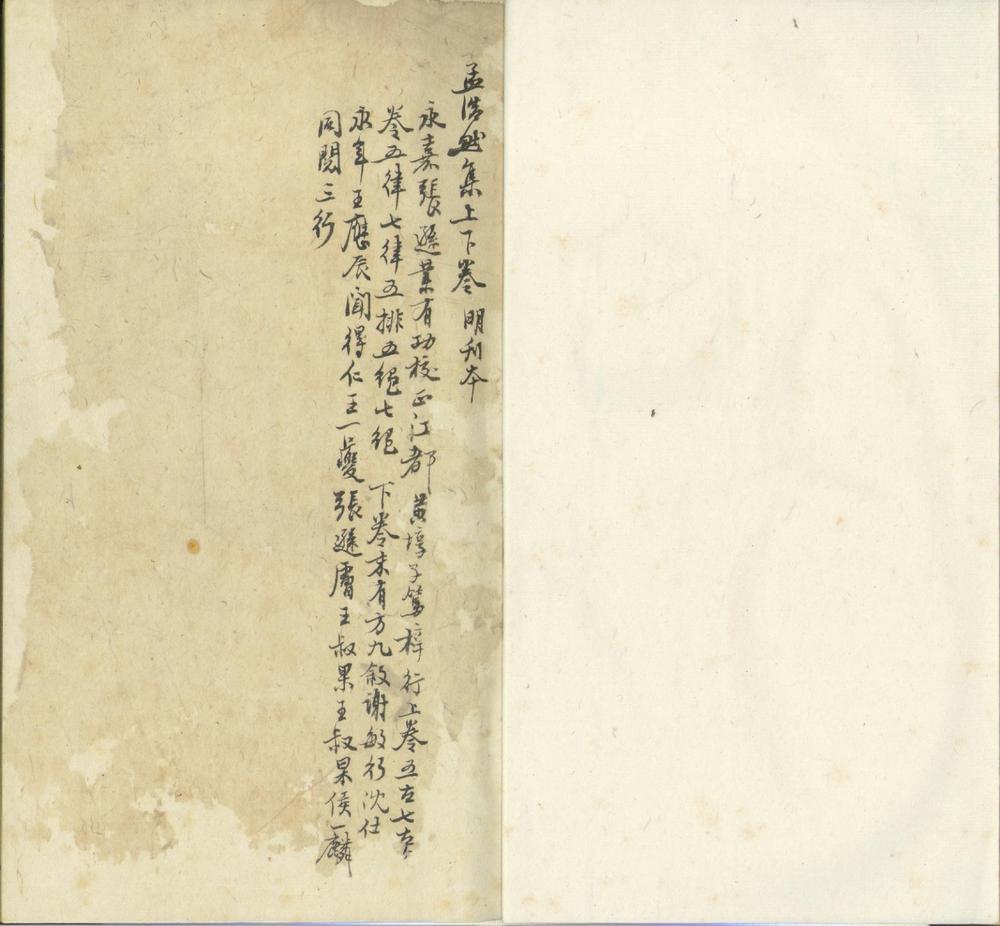 孟浩然集上下卷 明刊本
永嘉張遜業有功校正江都 黃埻子篤梓行上卷五古七古
卷五律七律五排五絕七絕 下卷末有方九敘謝敏行沈仕
永年王應辰聞得仁王一夔張遜膚王叔果王叔杲侯一麟
同閱三行